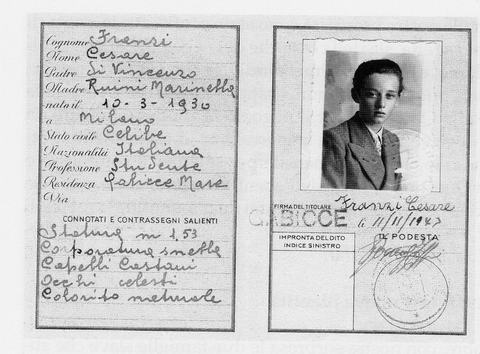 Cognome Franzi
Nome Cesare
Padre di Vincenzo
Madre Ruini Marinella
nato il 10-3-1930
a Milano
Stato civile Celibe
Nazionalità Italiana
Professione Studente
Residenza Gabicce Mare
Via
CONNOTATI E CONTRASSEGNI SALIENTI
Statura m 1,53
Corporatura snella
Capelli Castani
Occhi celesti
Colorito naturale
FIRMA DEL TITOLARE Franzi Cesare
GABICCE li 11/11/1943
IMPRONTA DEL DITO
INDICE SINISTRO
IL PODESTA